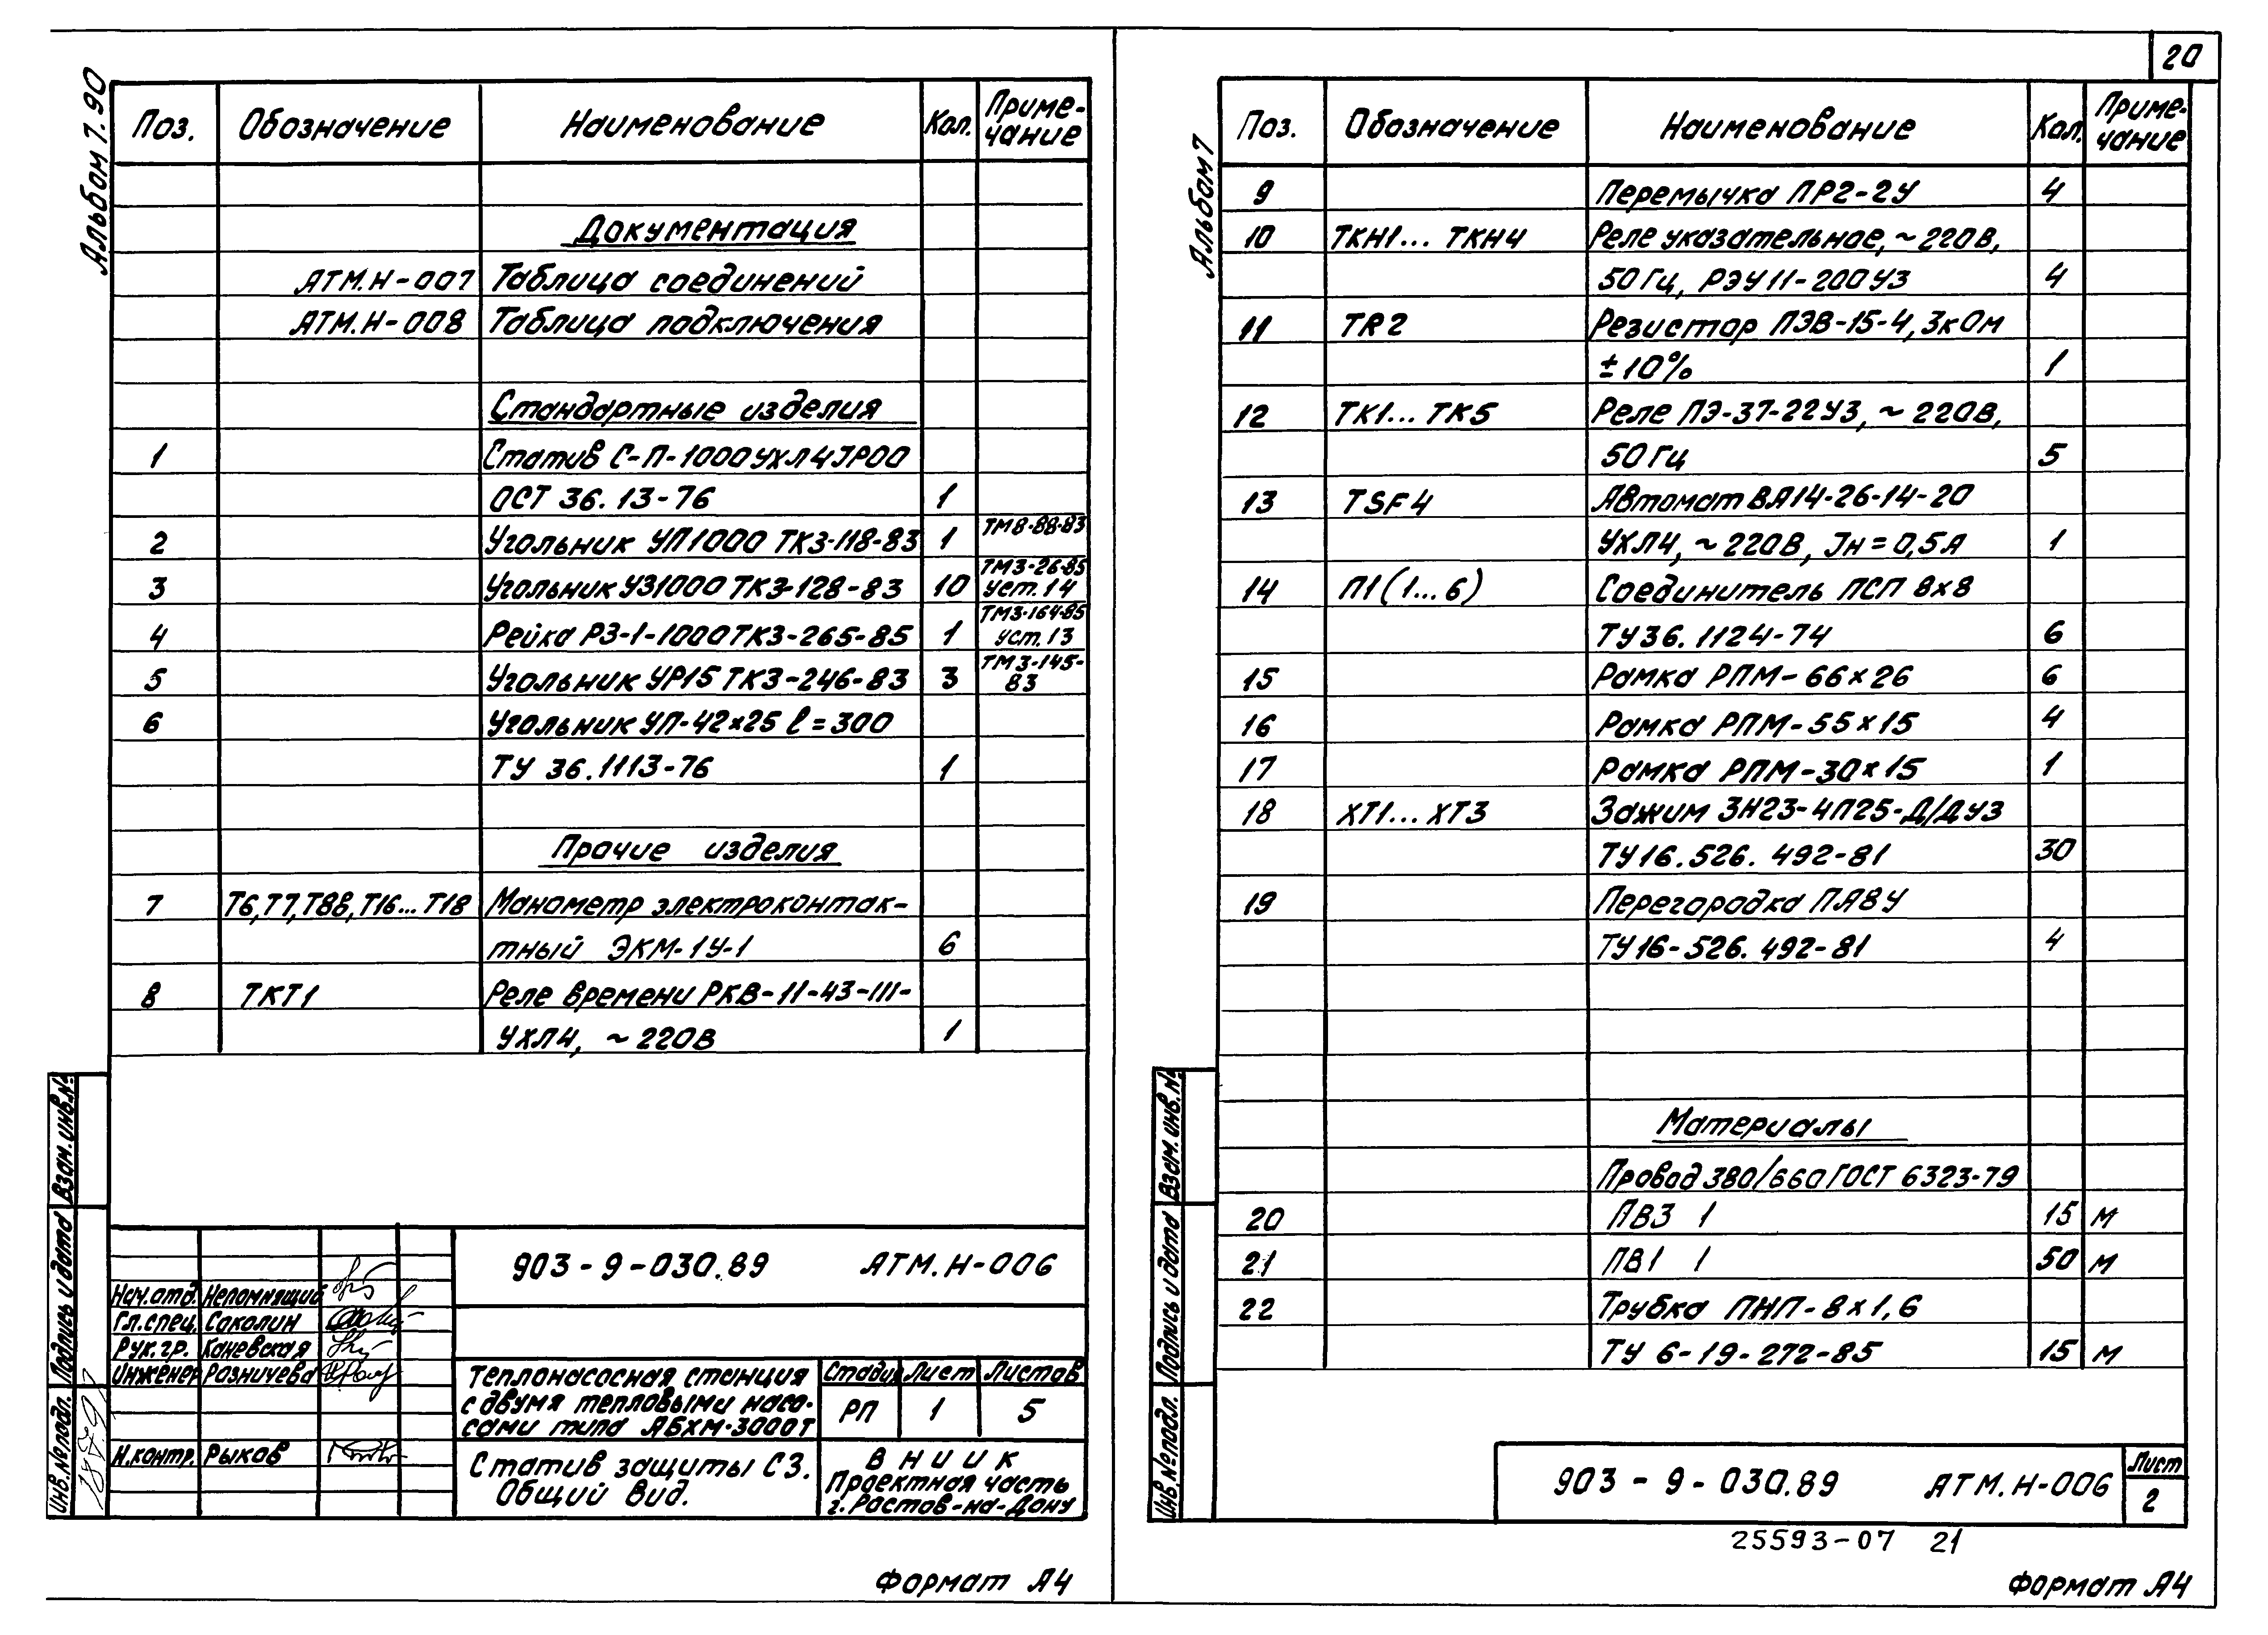 Альбом 7.90
Поз. Обозначение Наименование Кол. Приме-
чание
Документация
АТМ.Н-007 Таблица соединений
АТМ.Н-008 Таблица подключения
Стандартные изделия
1 Статив С-П-1000УХЛ4JP00
ОСТ 36.13-76 1
2 Угольник УП1000 ТК3-118-83 1 ТМ8-88-83
3 Угольник УЗ1000 ТК3-128-83 10 ТМ3-26-85
уст.14
4 Рейка РЗ-1-1000ТК3-265-85 1 ТМ3-164-85
уст.13
5 Угольник УР15 ТК3-246-83 3 ТМ3-145-
83
6 Угольник УП-42х25 l=300
ТУ 36.1113-76 1
Прочие изделия
7 Т6,Т7,Т8В,Т16...Т18 Манометр электроконтак-
тный ЭКМ-1У-1 6
8 ТКТ1 Реле времени РКВ-11-43-III-
УХЛ4, ~220В 1
Взам.инв.№
Подпись и дата
Инв.№подл.
903-9-030.89 АТМ.Н-006
Нач.отд. Непомнящий
Гл.спец. Соколин
Рук.гр. Каневская
Инженер Разничева
Н.контр. Рыков
Теплонасосная станция
с двумя тепловыми насо-
сами типа АБХМ-3000Т
Стадия Лист Листов
РП 1 5
Статив защиты С3.
Общий вид.
ВНИИК
Проектная часть
г.Ростов-на-Дону
Формат А4
20
Альбом 7
Поз. Обозначение Наименование Кол. Приме-
чание
9 Перемычка ПР2-2У 4
10 ТКН1...ТКН4 Реле указательное, ~220В,
50Гц, РЭУ11-200У3 4
11 TR2 Резистор ПЭВ-15-4,3кОм
±10% 1
12 ТК1...ТК5 Реле ПЭ-37-22У3, ~220В,
50Гц 5
13 TSF4 Автомат ВА14-26-14-20
УХЛ4, ~220В, Jн=0,5А 1
14 П1(1...6) Соединитель ПСП 8х8
ТУ36.1124-74 6
15 Рамка РПМ-66х26 6
16 Рамка РПМ-55х15 4
17 Рамка РПМ-30х15 1
18 ХТ1...ХТ3 Зажим ЗН23-4П25-Д/ДУ3
ТУ16.526.492-81 30
19 Перегородка ПАВУ
ТУ16-526.492-81 4
Материалы
Провод 380/660 ГОСТ 6323-79
20 ПВ3 1 15 м
21 ПВ1 1 50 м
22 Трубка ПНП-8х1,6
ТУ 6-19-272-85 15 м
Взам.инв.№
Подпись и дата
Инв.№подл.
903-9-030.89 АТМ.Н-006
Лист
2
25593-07 21
Формат А4